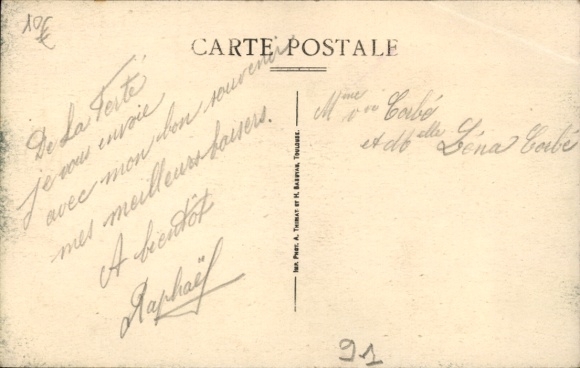 10€
CARTE POSTALE
De La Ferté
je vous envoie
avec mon bon souvenir
mes meilleurs baisers.
A bientôt
Raphaël
Mme Vve Corbé
et Melle Léna Corbé
IMP. PHOT. A. THIRIAT ET H. BASUYAU, TOULOUSE.
91